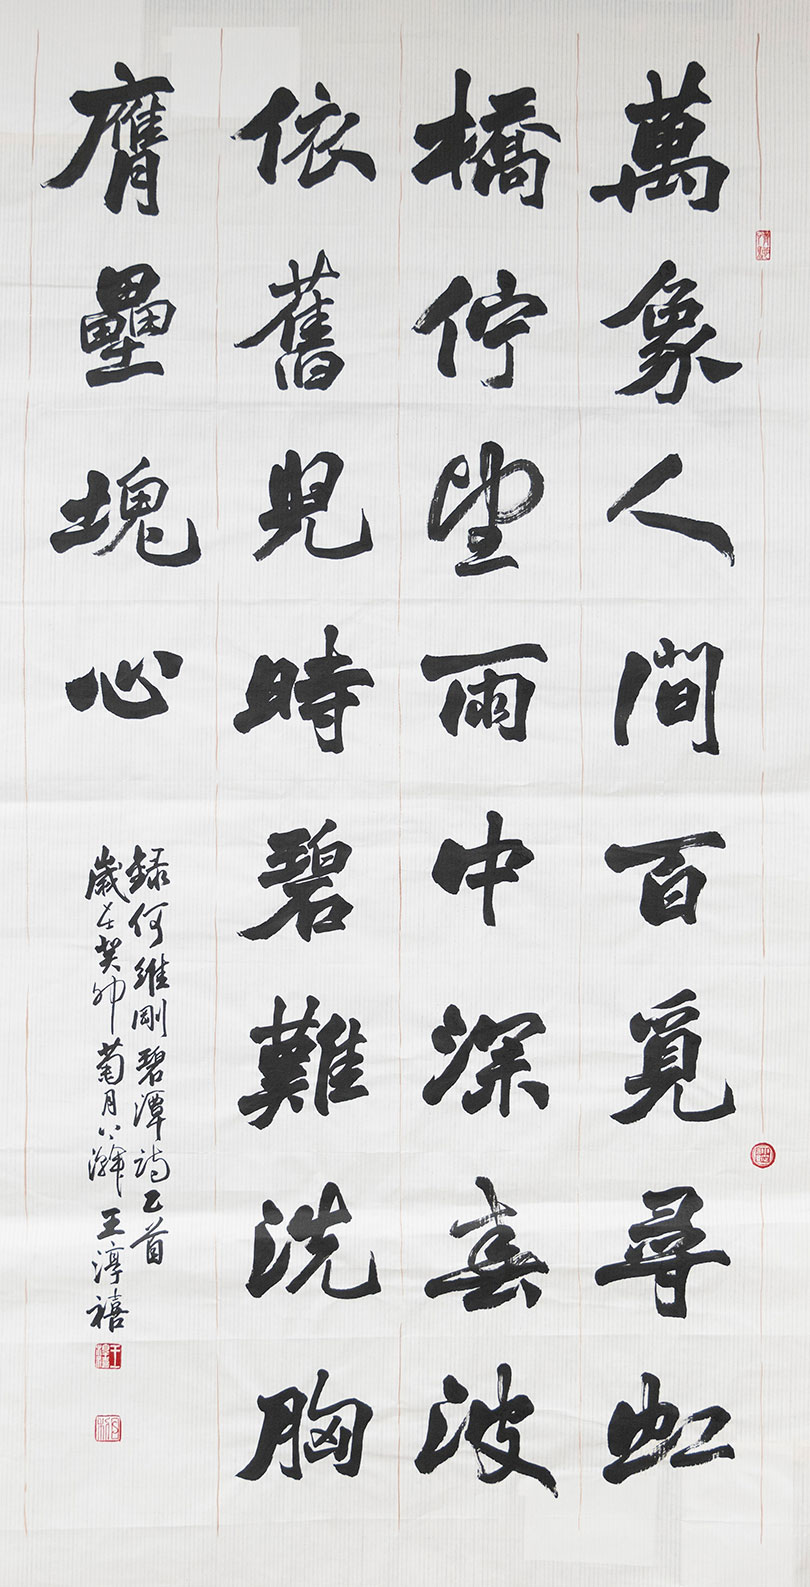 萬象人間百覓尋虹
橋佇望雨中深春波
依舊兒時碧難洗胸
膺壘塊心
錄何維剛碧潭詩乙首
歲在癸卯菊月下澣王淳禧